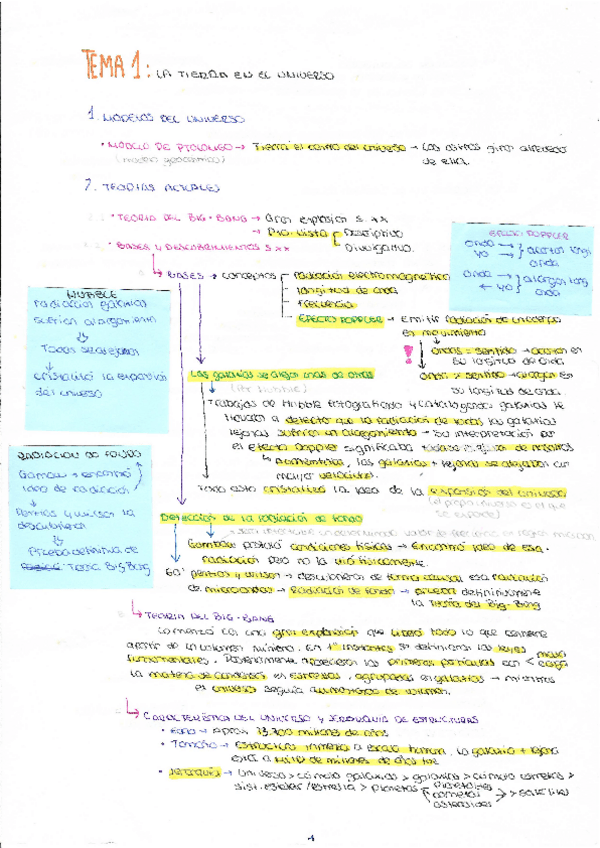 TEMA 1: LA TIERRA EN EL UNIVERSO
1. MODELOS DEL UNIVERSO
· MODELO DE PTOLOMEO → Tierra el centro del universo → Los astros giran alrededor
(modelo geocéntrico)
de ella.
2. TEORÍAS ACTUALES
· TEORÍA DEL BIG-BANG → Gran explosión S. XX
→ Doble vista
Descriptivo
Divulgativo.
· BASES Y DESCUBRIMIENTOS S. XX
EFECTO DOPPLER
onda →
yo →
acortan long.
onda
onda →
← yo
alargan long.
onda
↳ BASES → conceptos
radiación electromagnética
longitud de onda
frecuencia
EFECTO DOPPLER → Emitir radiación de un cuerpo
en movimiento
! ondas = sentido → acortan en
su longitud de onda
onda ≠ sentido → alargan en
su longitud de onda.
HUBBLE
radiación galaxias
sufrían alargamiento
↳ Todas se alejaban
↳ cristalizó la expansión
del universo
Las galaxias se alejan unas de otras
(Por Hubble)
Trabajos de Hubble fotografiando y catalogando galaxias le
llevaron a detectar que la radiación de todas las galaxias
lejanas sufrían un alargamiento → Su interpretación por
el efecto Doppler significaba todas se alejan de nosotros
↳ Aumentaba, las galaxias + lejanas se alejaban con
mayor velocidad.
Todo esto cristalizó la idea de la expansión del universo
(el propio universo es el que
se expande)
RADIACIÓN DE FONDO
Gamow → encontró
idea de radiación
Penzias y Wilson la
descubrieron
↳ Prueba definitiva de
Teoría Big Bang
Detección de la radiación de fondo
Gamow postuló condiciones físicas → Encontró idea de esa
radiación pero no la vió físicamente.
60' Penzias y Wilson → descubrieron de forma casual esa radiación
de microondas → Radiación de fondo → prueba definitivamente
la Teoría del Big-Bang
↳ TEORÍA DEL BIG-BANG
Comenzó con una gran explosión que liberó todo lo que contiene
a partir de un volumen mínimo. En 1os instantes se definieron las leyes
fundamentales. Posteriormente aparecieron las primeras partículas con < masa
carga
La materia se condensó en estrellas, agrupadas en galaxias → mientras
el universo seguía aumentando de volumen.
↳ CARACTERÍSTICAS DEL UNIVERSO Y JERARQUÍA DE ESTRUCTURAS
· Edad → Aprox. 13.700 millones de años
· Tamaño → Estructura inmensa a escala humana, la galaxia + lejana
está a miles de millones de años luz
· Jerarquía → Universo > cúmulo galaxias > galaxias > cúmulo estrellas >
sist. estelar / estrella > planetas
planetoides
cometas
asteroides
> satélites
1